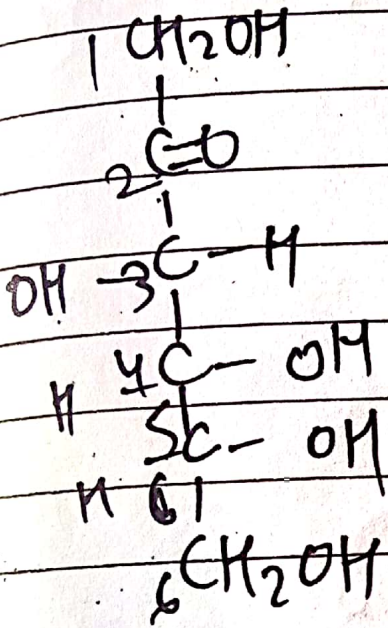 1 CH2OH
2 C=O
OH -3 C-H
H 4 C- OH
H 5 C- OH
6
6 CH2OH